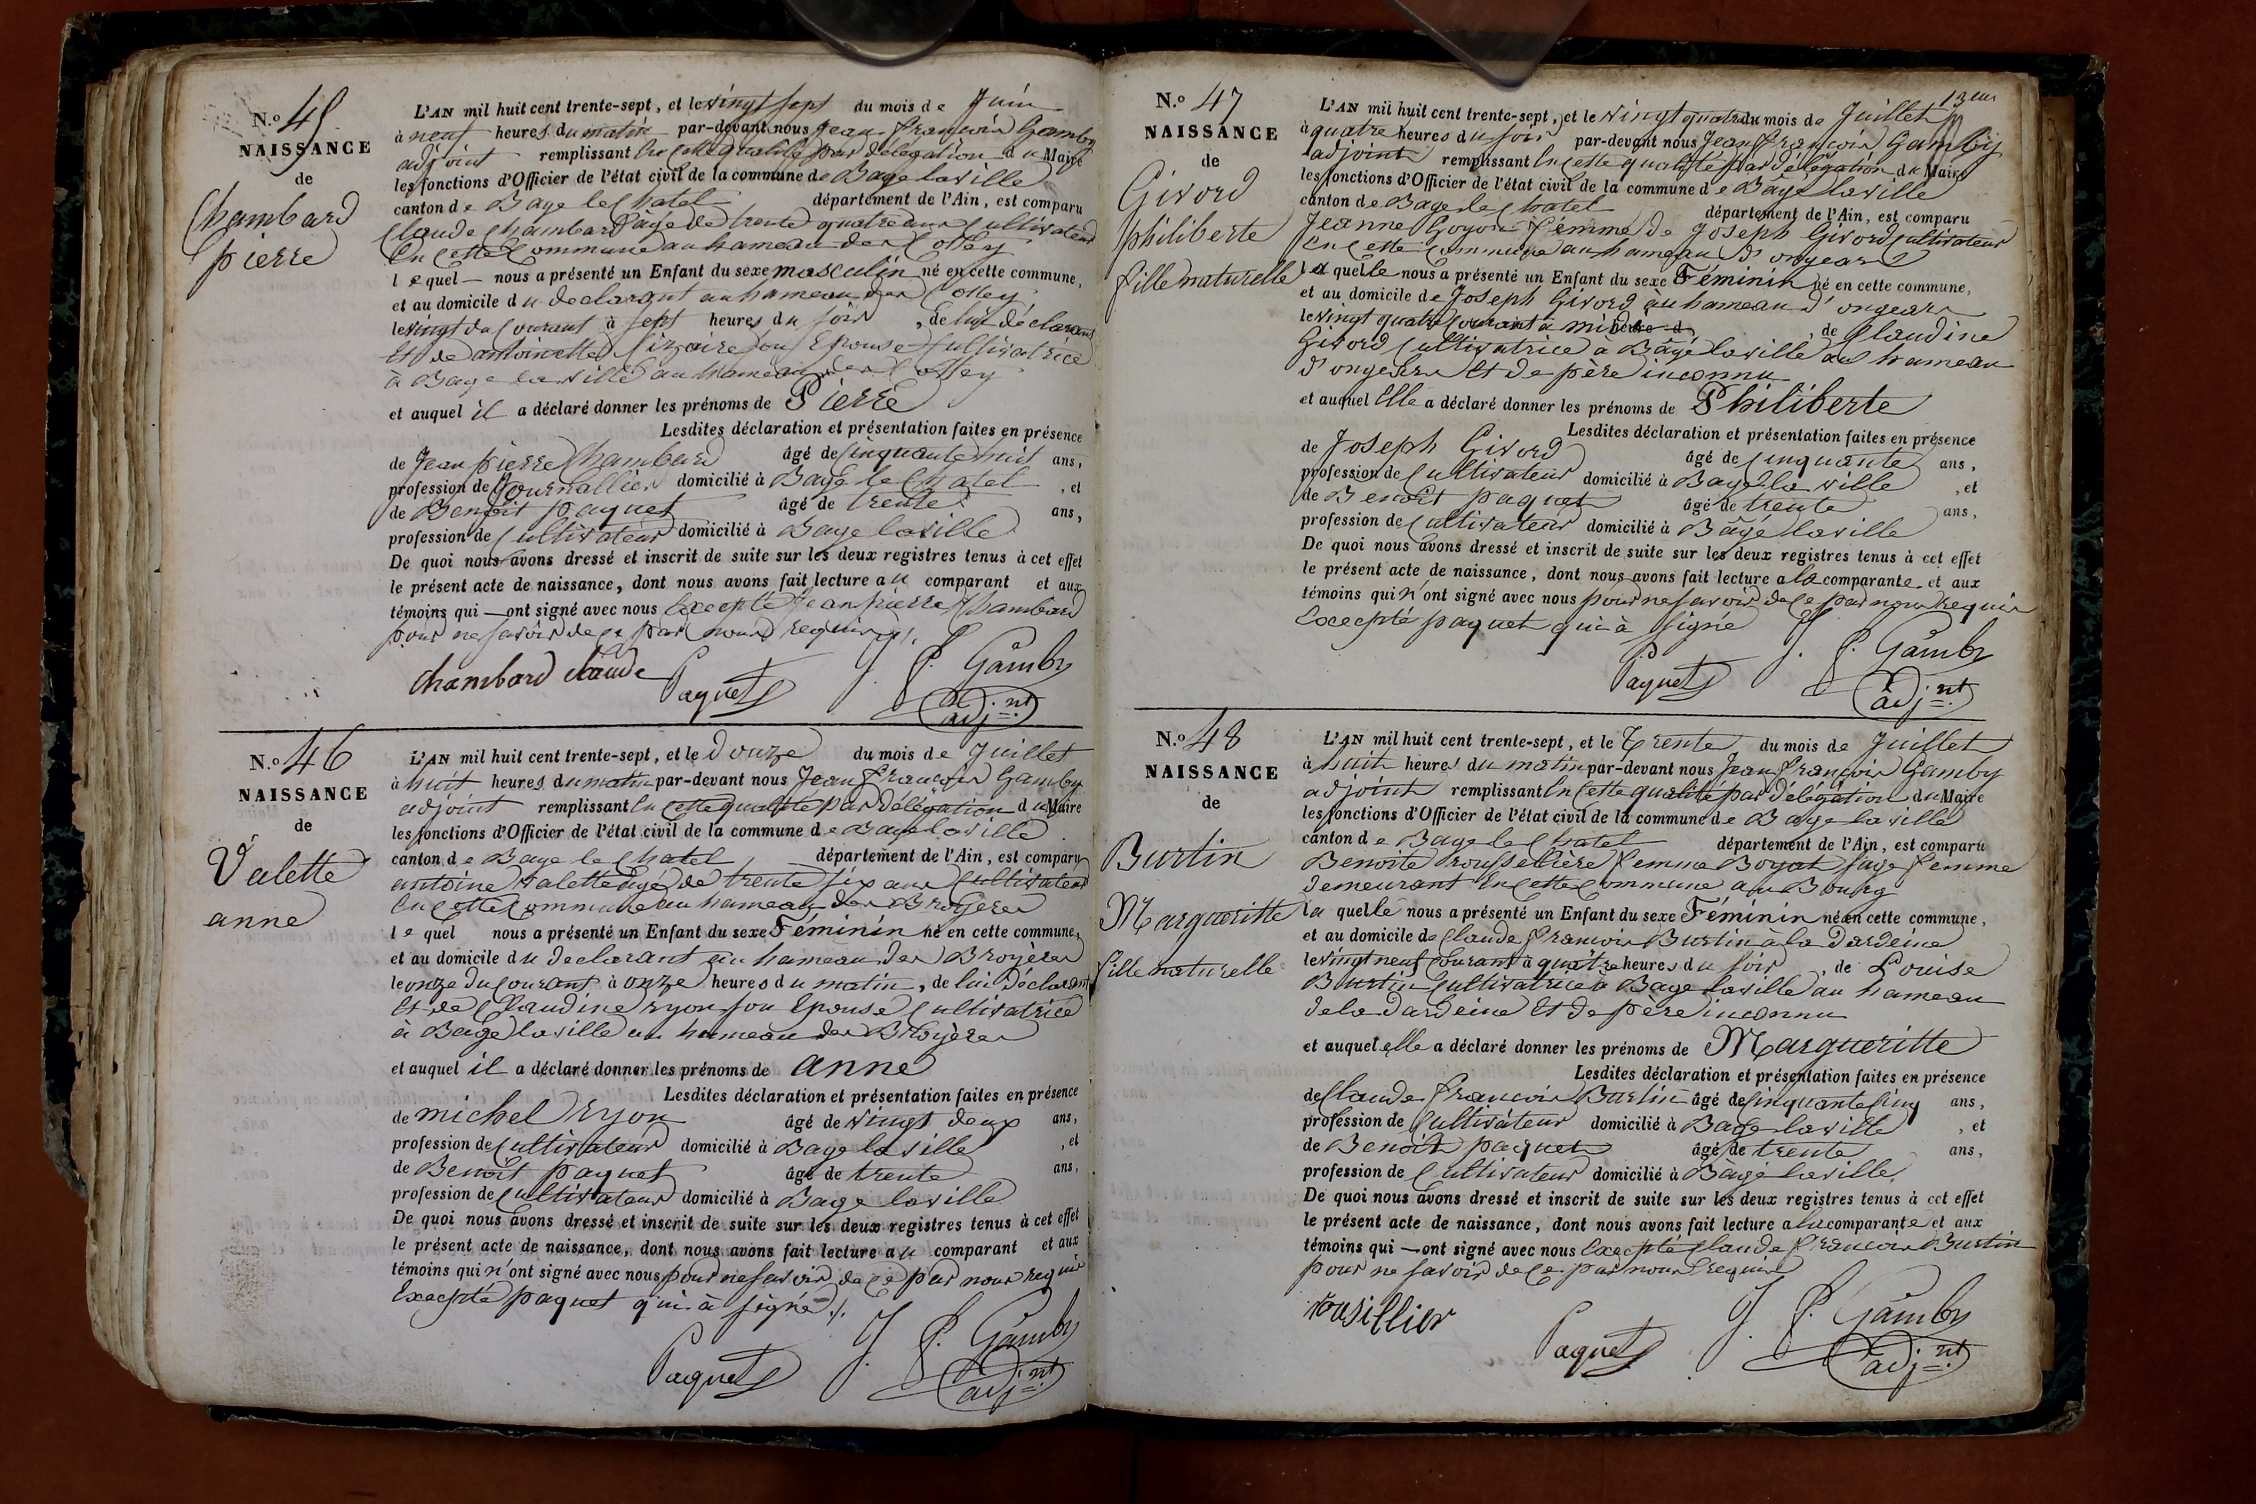 N.o 45
NAISSANCE
de
Chambard
pierre
L'AN mil huit cent trente-sept, et le vingt sept du mois de Juin
à neuf heures du matin par-devant nous Jean François Gamby
adjoint remplissant En Cette qualité par délégation du Maire
les fonctions d'Officier de l'état civil de la commune de Bage laville
canton de Bage le Chatel département de l'Ain, est comparu
Claude Chambard âgé de trente quatre ans Cultivateur
En Cette Commune au hameau des
lequel nous a présenté un Enfant du sexe masculin né en cette commune,
et au domicile du declarant au hameau des
le vingt du Courant à sept heures du soir, de lui déclarant
Et de antoinette son Epouse Cultivatrice
à Bage laville au hameau des
et auquel il a déclaré donner les prénoms de Pierre
Lesdites déclaration et présentation faites en présence
de Jean pierre Chambard âgé de Cinquante huit ans,
profession de Journallier domicilié à Bage le Chatel, et
de Benoit paquet âgé de trente ans,
profession de Cultivateur domicilié à Bage laville
De quoi nous avons dressé et inscrit de suite sur les deux registres tenus à cet effet
le présent acte de naissance, dont nous avons fait lecture au comparant et aux
témoins qui ont signé avec nous Excepté Jean pierre Chambard
pour ne savoir de ce par nous requis
chambard claude Paquet J. F. Gamby
adj.nt
N.o 46
NAISSANCE
de
Valette
anne
L'AN mil huit cent trente-sept, et le Douze du mois de Juillet
à huit heures du matin par-devant nous Jean François Gamby
adjoint remplissant En Cette qualité par délégation du Maire
les fonctions d'Officier de l'état civil de la commune de Bage laville
canton de Bage le Chatel département de l'Ain, est comparu
antoine Valette âgé de trente six ans Cultivateur
En Cette Commune au hameau des Broyères
lequel nous a présenté un Enfant du sexe Féminin né en cette commune,
et au domicile du declarant au hameau des Broyères
le onze du Courant à onze heures du matin, de lui déclarant
Et de Claudine ryon son Epouse Cultivatrice
à Bagé laville au hameau des Broyères
et auquel il a déclaré donner les prénoms de anne
Lesdites déclaration et présentation faites en présence
de michel Ryon âgé de vingt deux ans,
profession de Cultivateur domicilié à Bage la ville, et
de Benoit paquet âgé de trente ans,
profession de Cultivateur domicilié à Bage laville
De quoi nous avons dressé et inscrit de suite sur les deux registres tenus à cet effet
le présent acte de naissance, dont nous avons fait lecture au comparant et aux
témoins qui n'ont signé avec nous pour ne savoir de ce par nous requis
Excepté paquet qui à signé
Paquet J. F. Gamby
adj.nt
13
N.o 47
NAISSANCE
de
Givord
philiberte
fille naturelle
L'AN mil huit cent trente-sept, et le vingt quatre du mois de Juillet
à quatre heures du soir par-devant nous Jean François Gamby
adjoint remplissant En Cette qualité par délégation du Maire
les fonctions d'Officier de l'état civil de la commune de Bagé laville
canton de Bage le Chatel département de l'Ain, est comparu
Jeanne Goyon femme de Joseph Givord Cultivateur
En Cette Commune au hameau d'ongears
laquelle nous a présenté un Enfant du sexe Féminin né en cette commune,
et au domicile de Joseph Givord au hameau d'ongears
le vingt quatre Courant à midi heures d, de Claudine
Givord Cultivatrice à Bâgé laville au hameau
d' Et de père inconnu
et auquel Elle a déclaré donner les prénoms de Philiberte
Lesdites déclaration et présentation faites en présence
de Joseph Givord âgé de Cinquante ans,
profession de Cultivateur domicilié à Bagé la ville, et
de Benoit paquet âgé de trente ans,
profession de Cultivateur domicilié à Bagé laville
De quoi nous avons dressé et inscrit de suite sur les deux registres tenus à cet effet
le présent acte de naissance, dont nous avons fait lecture a la comparante et aux
témoins qui n'ont signé avec nous pour ne savoir de ce par nous requis
Excepté paquet qui à signé
Paquet J. F. Gamby
adj.nt
N.o 48
NAISSANCE
de
Burtin
Margueritte
fille naturelle
L'AN mil huit cent trente-sept, et le Trente du mois de Juillet
à huit heures du matin par-devant nous Jean François Gamby
adjoint remplissant En Cette qualité par délégation du Maire
les fonctions d'Officier de l'état civil de la commune de Bage laville
canton de Bage le Chatel département de l'Ain, est comparu
Benoite femme Boyat sage femme
demeurant En Cette Commune au Bourg
laquelle nous a présenté un Enfant du sexe Féminin né en cette commune,
et au domicile de Claude François Burtin à la Dardeine
le vingt neuf Courant à quatre heures du soir, de Louise
Burtin Cultivatrice à Bage laville au hameau
de la Dardeine Et de père inconnu
et auquel elle a déclaré donner les prénoms de Margueritte
Lesdites déclaration et présentation faites en présence
de Claude François Burtin âgé de Cinquante Cinq ans,
profession de Cultivateur domicilié à Bage laville, et
de Benoit paquet âgé de trente ans,
profession de Cultivateur domicilié à Bâgé laville
De quoi nous avons dressé et inscrit de suite sur les deux registres tenus à cet effet
le présent acte de naissance, dont nous avons fait lecture a la comparante et aux
témoins qui ont signé avec nous Excepté Claude François Burtin
pour ne savoir de ce par nous requis
Paquet J. F. Gamby
adj.nt